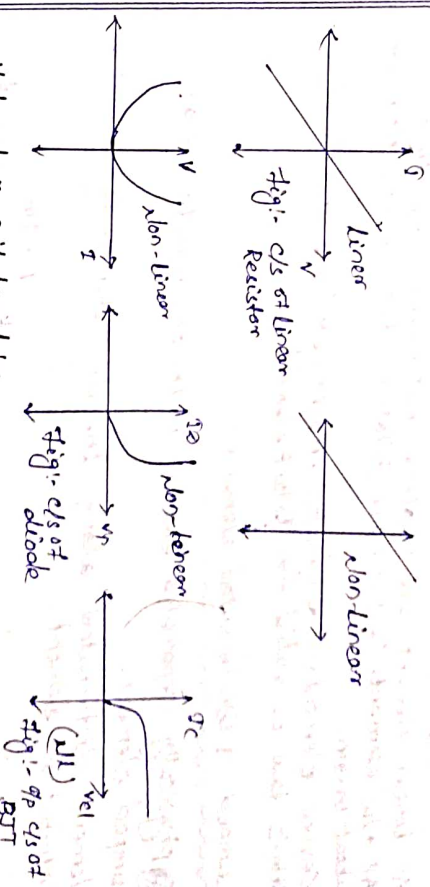 Liner
V
Fig:- c/s of linear
Resistor
Non-Linear
V
Non-Linear
I
Non-Linear
Fig:- c/s of
diode
Ic
(NL)
Fig:- o/p c/s of
BJT